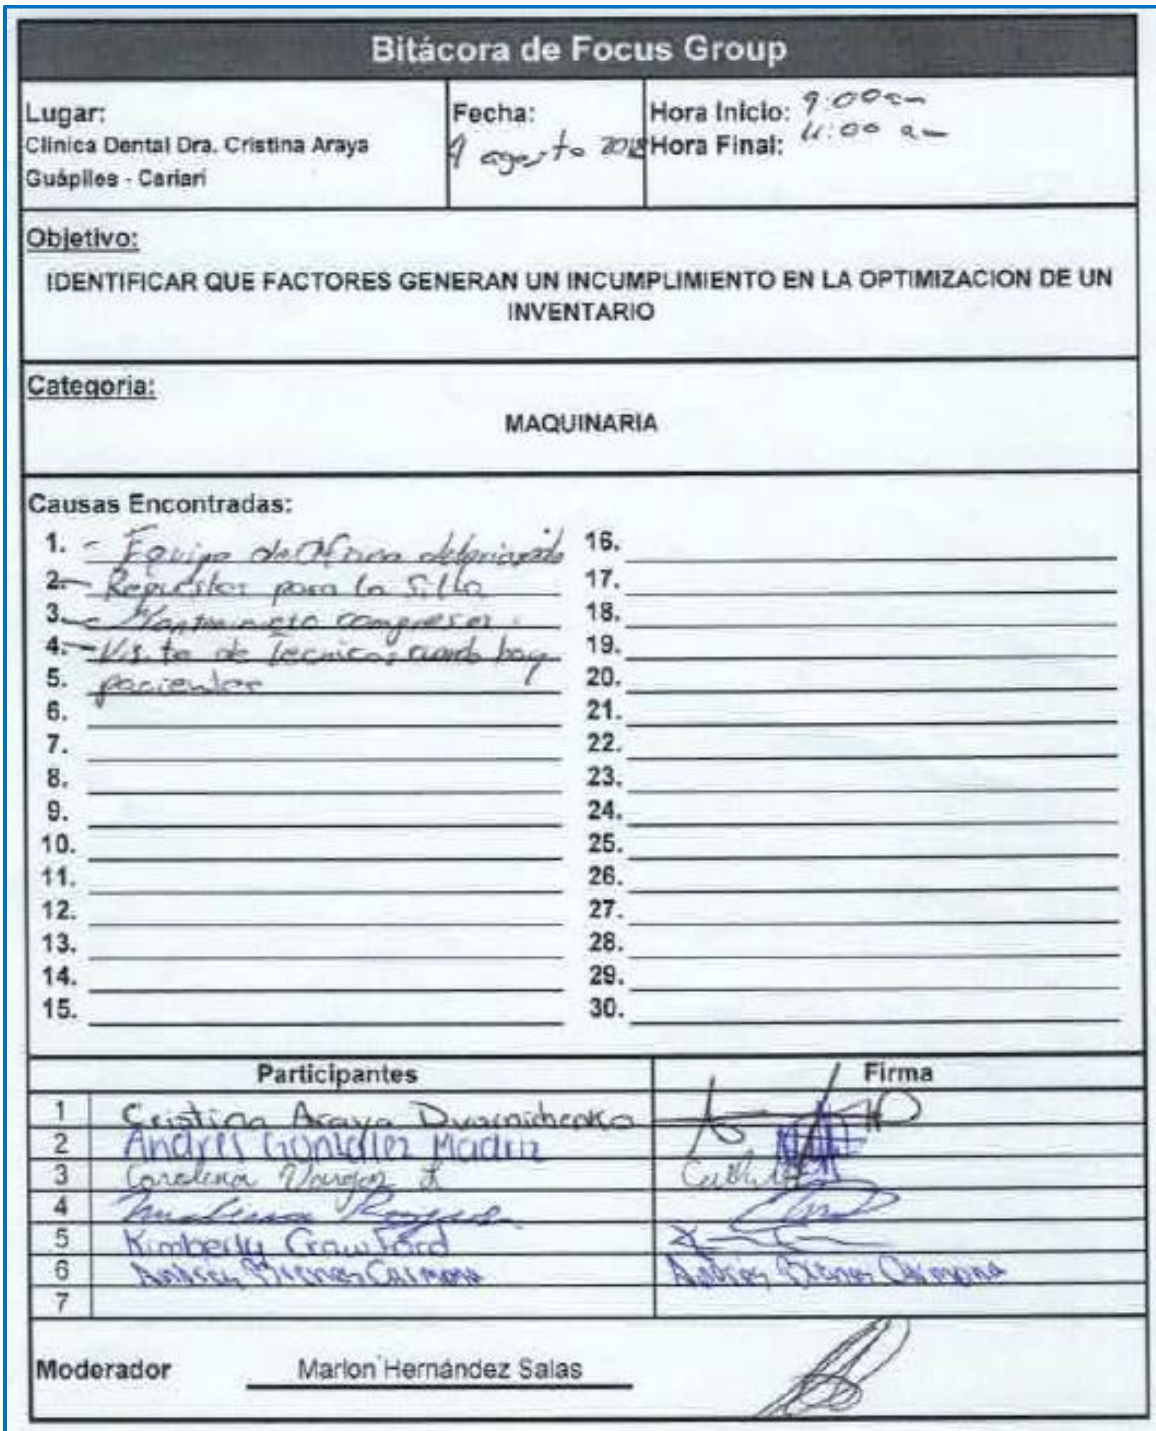 Bitácora de Focus Group
Lugar:
Clinica Dental Dra. Cristina Araya
Guápiles - Cariari
Fecha:
9 agosto 2018
Hora Inicio: 9:00am
Hora Final: 11:00 am
Objetivo:
IDENTIFICAR QUE FACTORES GENERAN UN INCUMPLIMIENTO EN LA OPTIMIZACION DE UN
INVENTARIO
Categoria:
MAQUINARIA
Causas Encontradas:
1. - Equipo de oficina deteriorado
2. - Repuestos para la silla
3. - Mantenimiento compresor
4. - Visita de tecnicos cuando hay
5. pacientes
6.
7.
8.
9.
10.
11.
12.
13.
14.
15.
16.
17.
18.
19.
20.
21.
22.
23.
24.
25.
26.
27.
28.
29.
30.
Participantes Firma
1 Cristina Araya Dvornichenko
2 Andrés González Madriz
3 Carolina Vargas
4 Rojas
5 Kimberly Crawford
6 Andrés Brenes Carmona Andrés Brenes Carmona
7
Moderador Marlon Hernández Salas